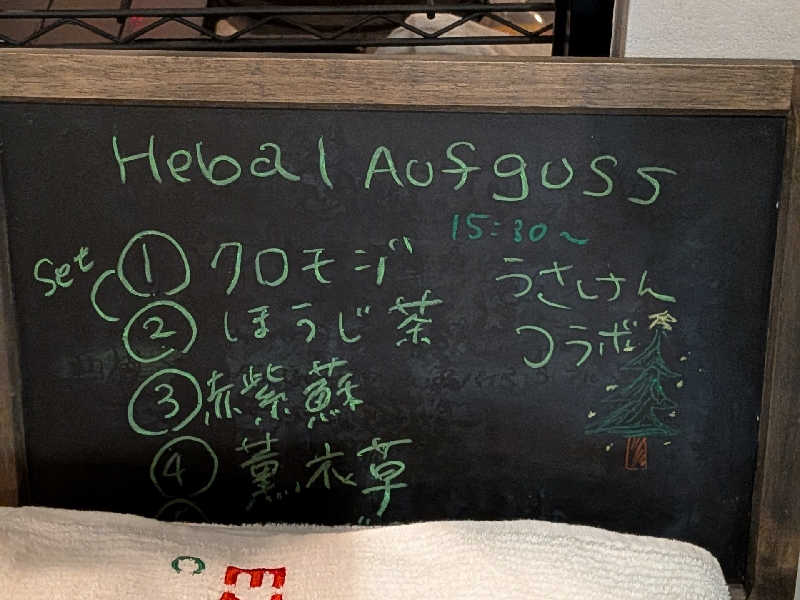 Hebal Aufguss
15:30〜
Set ① クロモジ
② ほうじ茶
③ 赤紫蘇
④ 薫衣草
うさしけん
コラボ
C